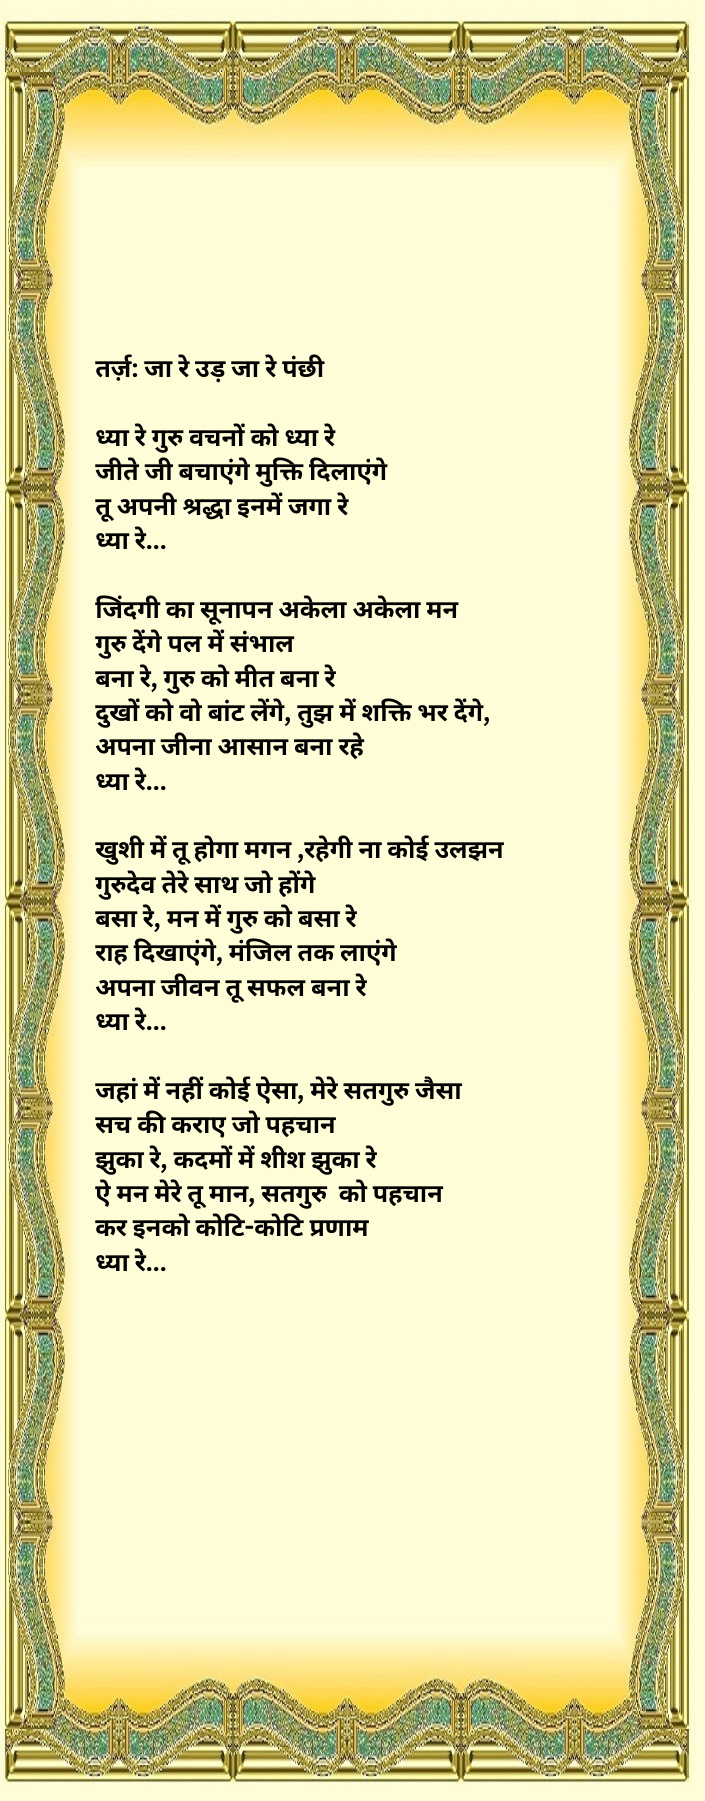 तर्ज़: जा रे उड़ जा रे पंछी
ध्या रे गुरु वचनों को ध्या रे
जीते जी बचाएंगे मुक्ति दिलाएंगे
तू अपनी श्रद्धा इनमें जगा रे
ध्या रे...
जिंदगी का सूनापन अकेला अकेला मन
गुरु देंगे पल में संभाल
बना रे, गुरु को मीत बना रे
दुखों को वो बांट लेंगे, तुझ में शक्ति भर देंगे,
अपना जीना आसान बना रहे
ध्या रे...
खुशी में तू होगा मगन ,रहेगी ना कोई उलझन
गुरुदेव तेरे साथ जो होंगे
बसा रे, मन में गुरु को बसा रे
राह दिखाएंगे, मंजिल तक लाएंगे
अपना जीवन तू सफल बना रे
ध्या रे...
जहां में नहीं कोई ऐसा, मेरे सतगुरु जैसा
सच की कराए जो पहचान
झुका रे, कदमों में शीश झुका रे
ऐ मन मेरे तू मान, सतगुरु  को पहचान
कर इनको कोटि-कोटि प्रणाम
ध्या रे...